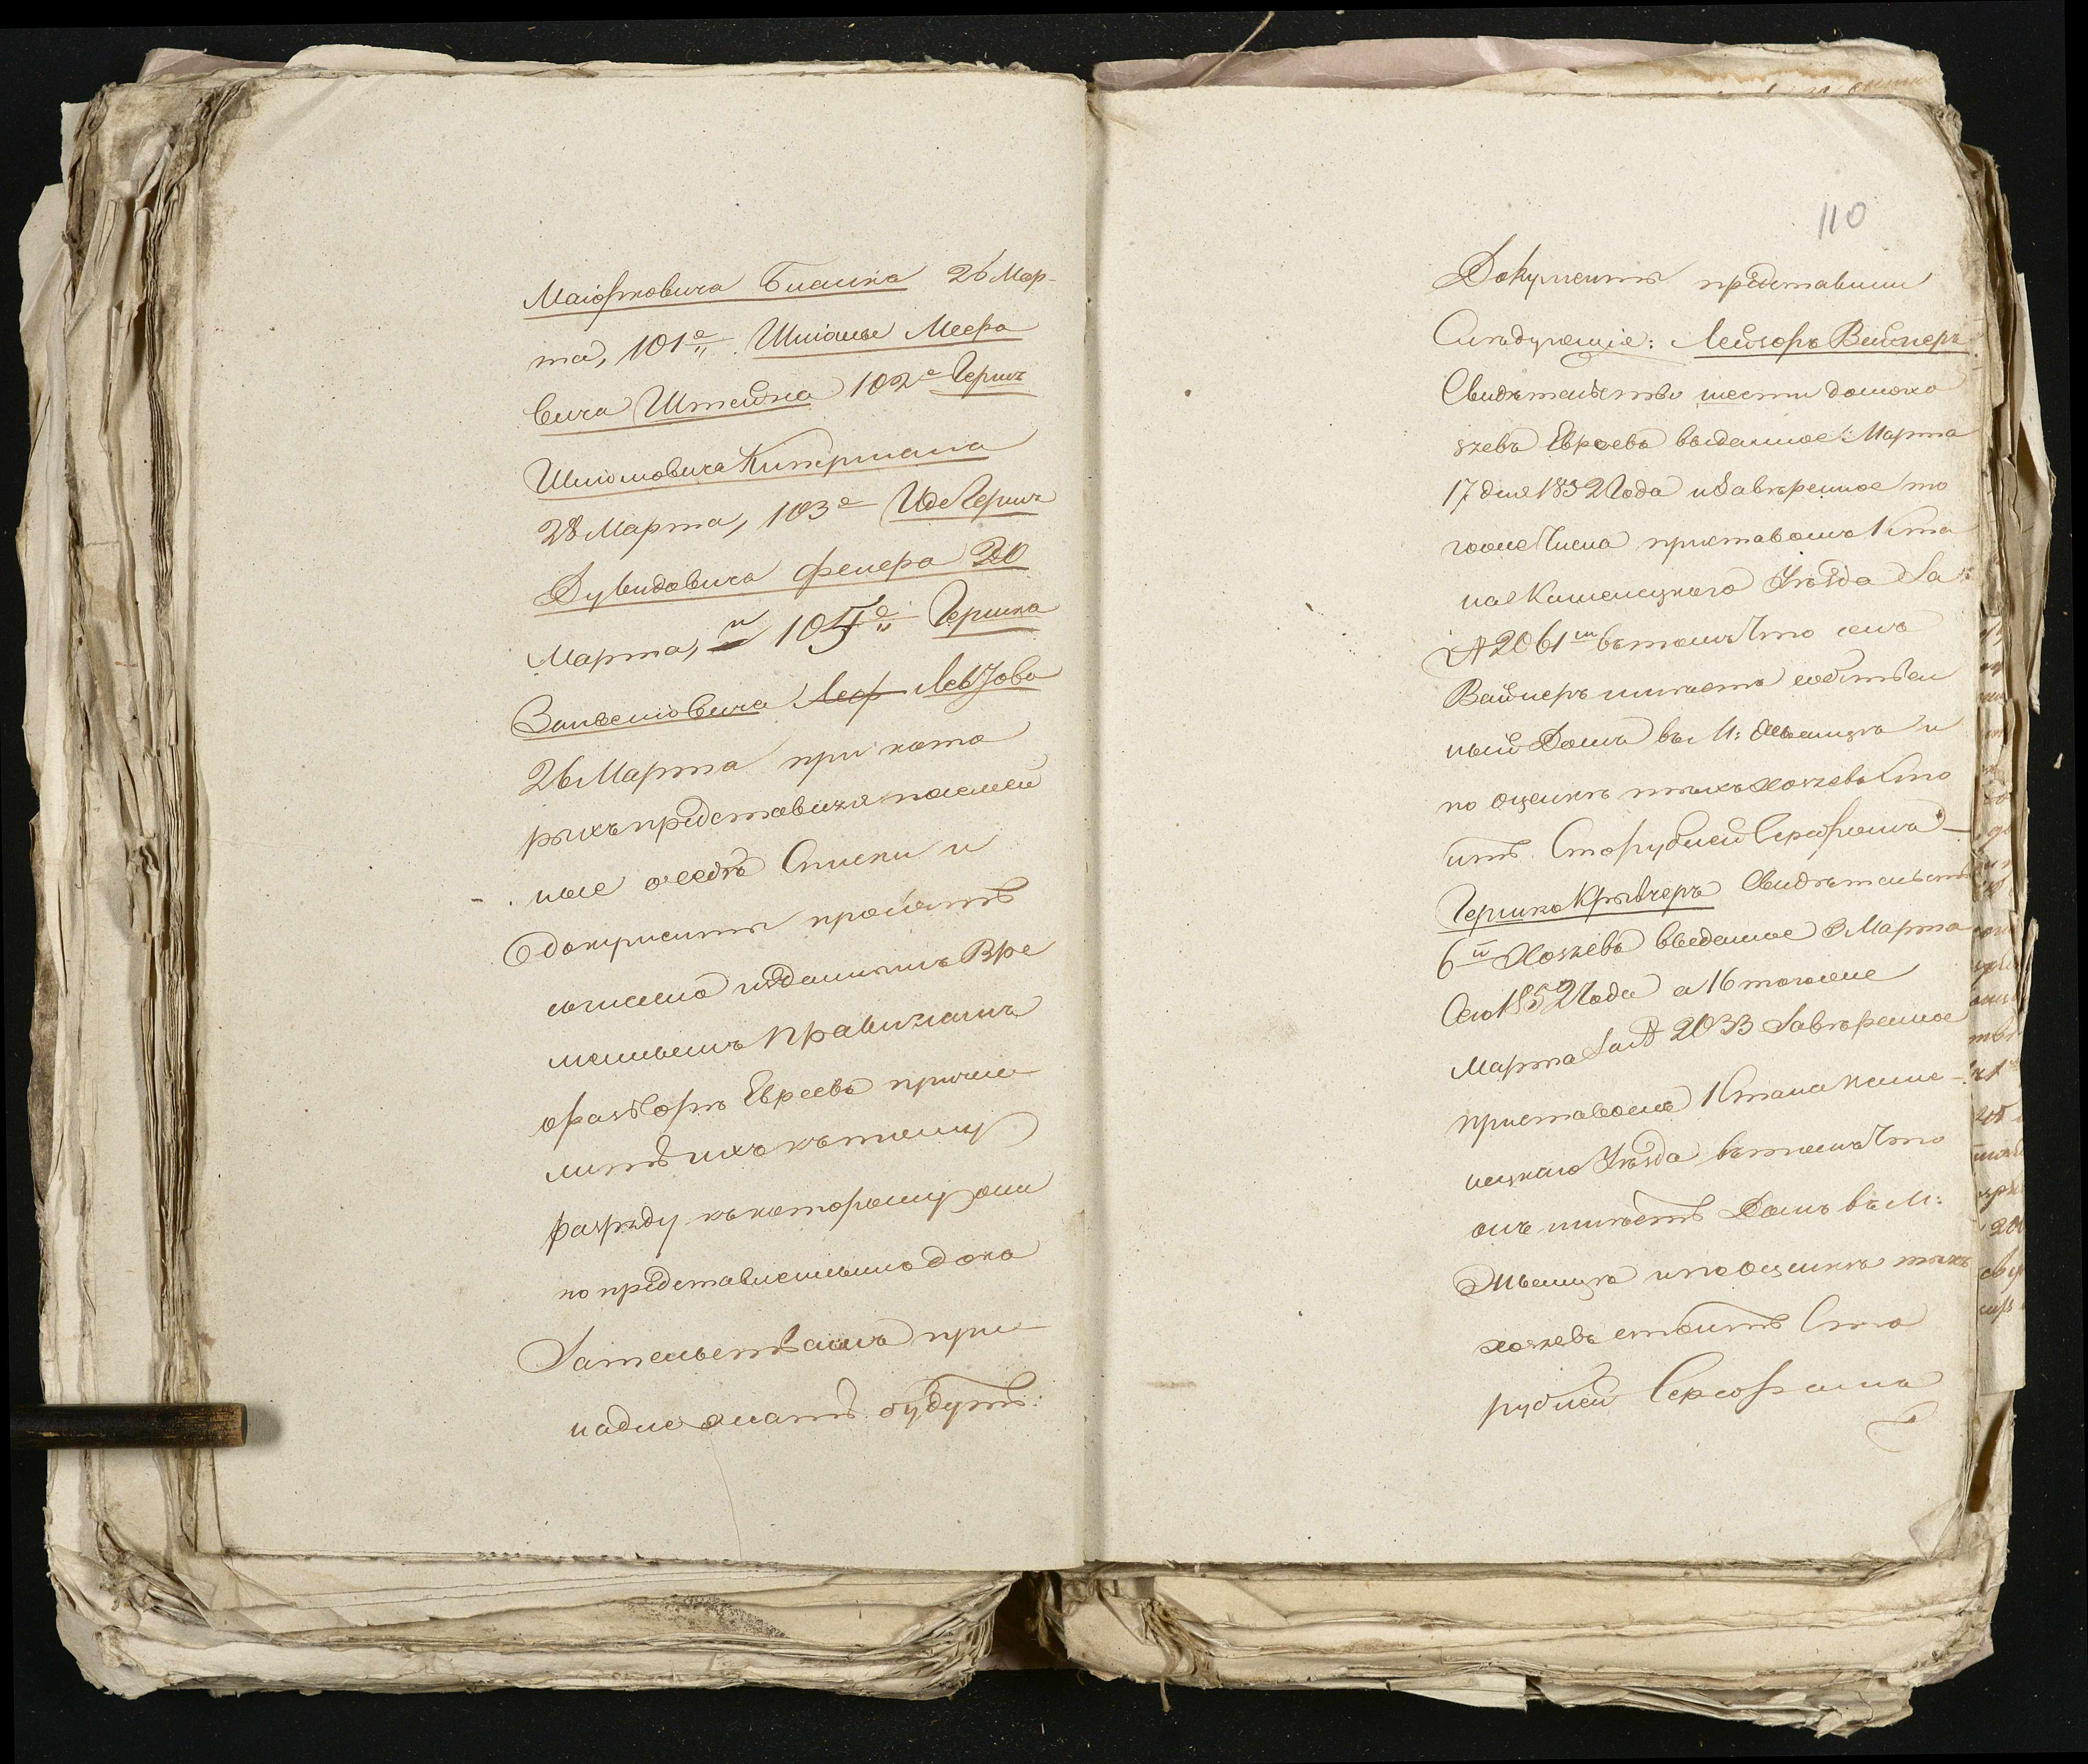 Маіорковича Бланка 26 Мар-
та, 101е Шліомы Меера
вича Штейна 102е Герш
Шліомовича Китермана
28 Марта, 103е Иде Герш
Дувидовича Фелера 20
Марта, и 105е Гершка
Занвеловича Лейзова
26 Марта при кото
рыхъ представилъ
ные о себѣ Списки и
документы проситъ
изданнымъ Вре
меннымъ Правиламъ
о разборѣ Евреевъ причи
лить ихъ къ тому
разряду къ которому они
по представленнымъ дока
зательствамъ при
надлежать будутъ:
110
Документы представили
Слѣдующіе: Лейзоръ Вайнеръ
Свидѣтельство шести домохо
зяевъ Евреевъ выданное Марта
17 дня 1852 Года и Завѣренное то
гоже Числа приставомъ 1 Ста
на Каменецкаго Уѣзда За
№ 2061м въ томъ Что онъ
Вайнеръ имѣетъ собствен
ный Домъ въ М: и
по оцѣнкѣ тѣхъ хозяевъ Сто
итъ Сто рублей Серебромъ
Гершко Крывчеръ Свидѣтельство
6и Хозяевъ выданное 3 Марта
Сего 1852 Года а 16 тогоже
Марта За № 2033 Завѣренное
приставомъ 1 Стана Каме
нецкаго Уѣзда въ томъ Что
онъ имѣетъ Домъ въ М:
и по Оцѣнкѣ тѣхъ
хозяевъ стоитъ Сто
рублей Серебромъ